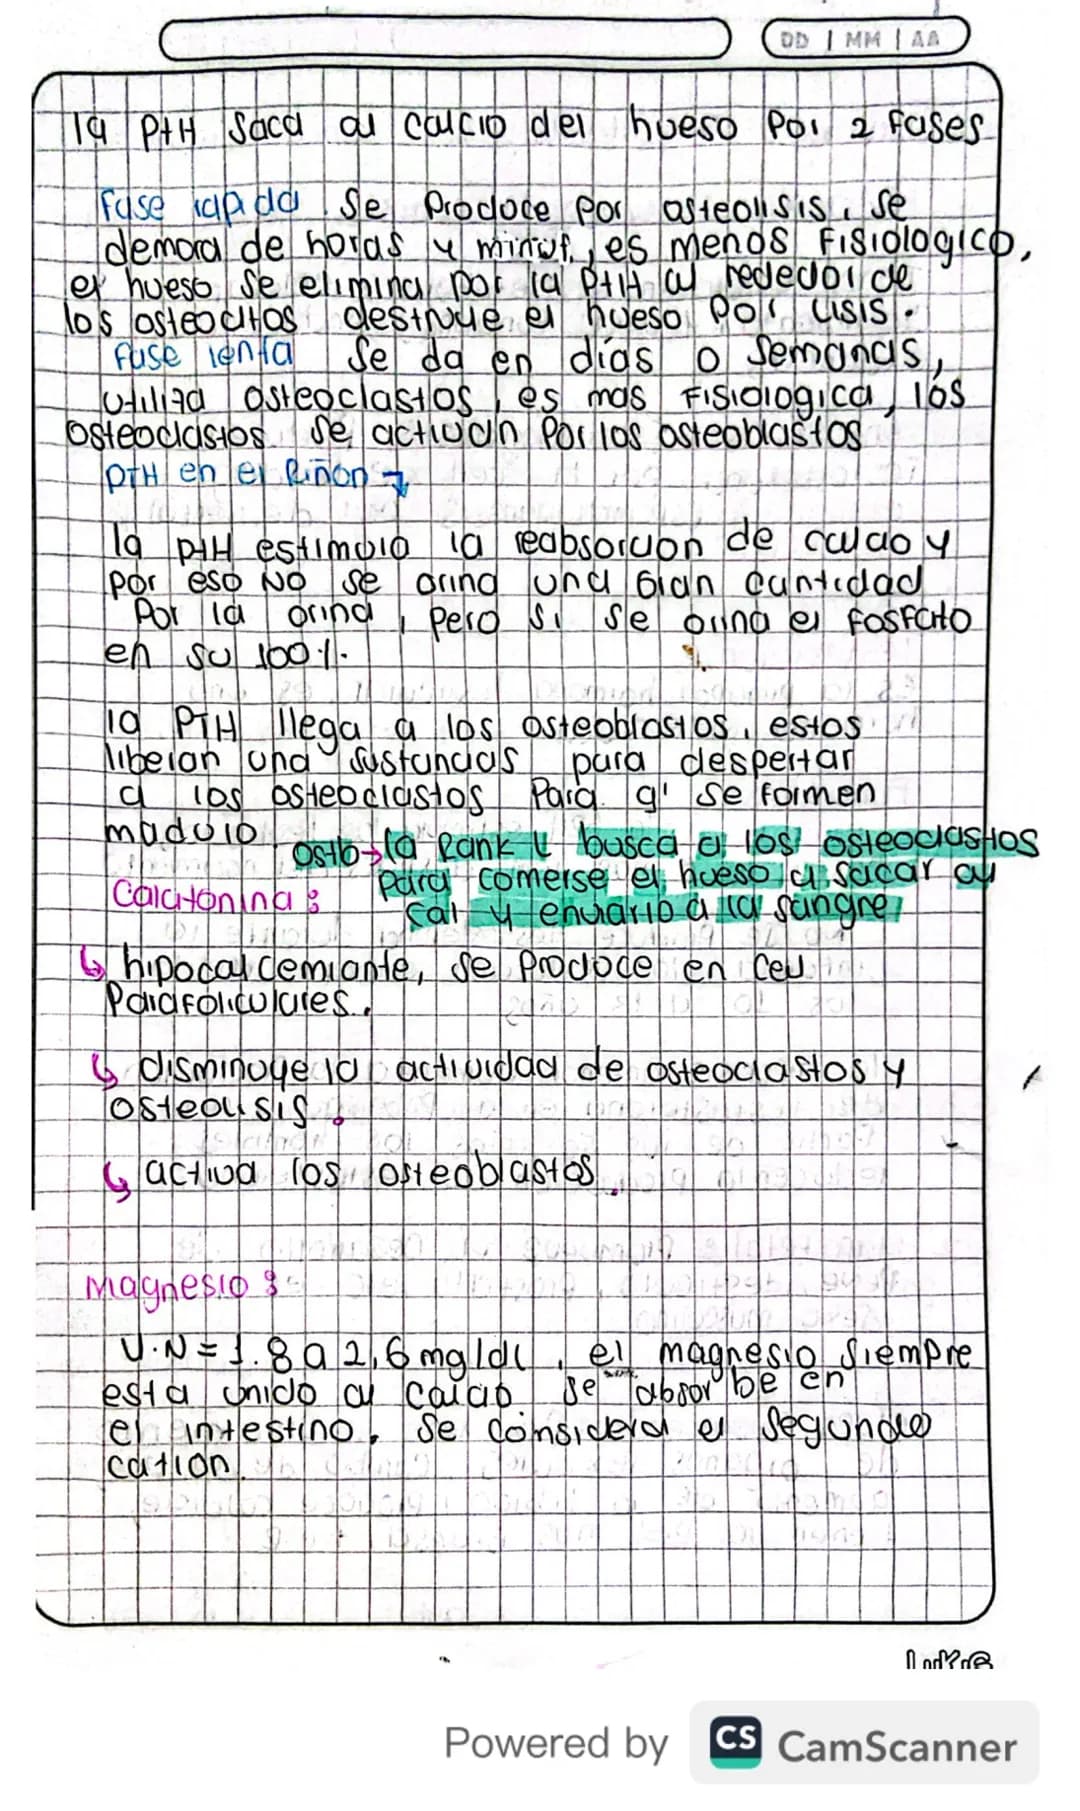 DD | MM | AA
la PtH Saca al calcio del hueso Por 2 fases
fase rapida. Se Produce por osteolisis, se
demora de horas y minut, es menos Fisiologico,
el hueso se elimina por la PtH al rededor de
los osteocitos destruye el hueso Por lisis.
fase lenta Se da en días o Semanas,
utiliza osteoclastos, es mas Fisiologica, los
osteoclastos se activan Por los osteoblastos
PTH en el Riñon
la PtH estimula la reabsorcion de calcio y
por eso NO se orina una gran cantidad
Por la orina, Pero Si Se orina el FOSFATO
en su 100%.
la PTH llega a los osteoblastos, estos
liberan una sustancias para despertar
a los osteoclastos Para q' se formen
maduro.
Ostb→la Rank L busca a los osteoclastos
para comerse el hueso y sacar al
cal y enviarlo a la sangre
Calcitonina:
hipocalcemiante, se Produce en Cell
Parafoliculares.
disminuye la actividad de osteoclastos y
osteolisis.
activa los osteoblastos.
Magnesio:
V.N = 1.8 a 2,6 mg/dl, el magnesio Siempre
esta unido al Calcio. Se absorbe en
el intestino, Se considera el Segundo
cation.
Powered by CS CamScanner